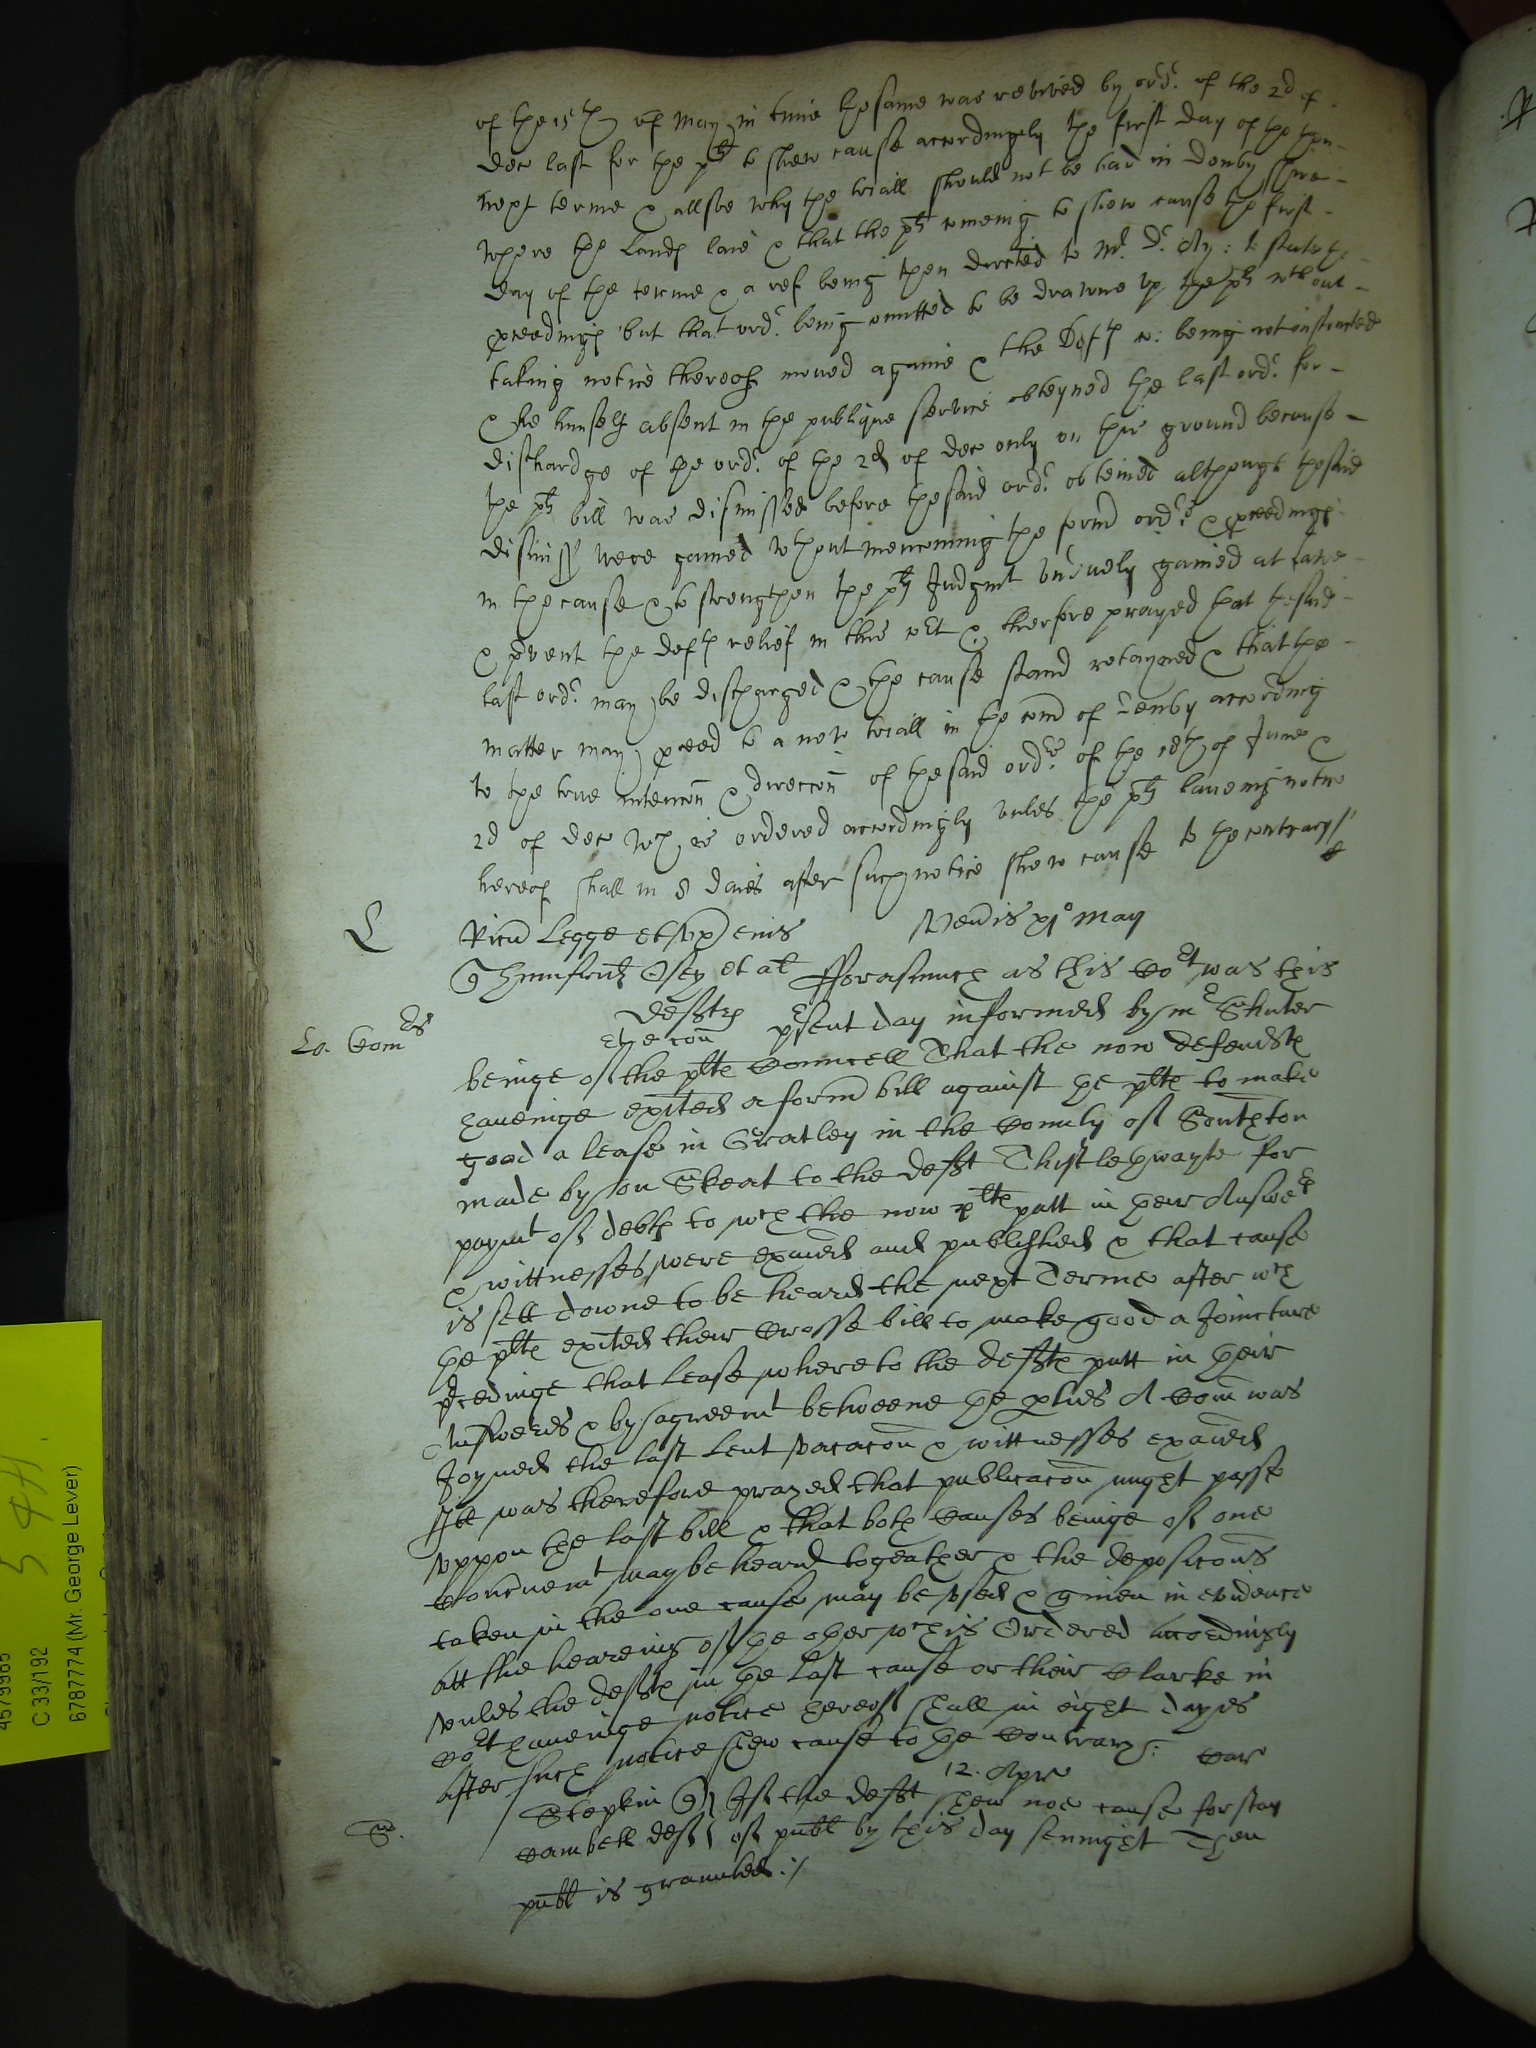 of the 15th of May in time the same was revived by ordr. of the 2d of
Dec last for the plt to shew cause accordingly the first day of the then
next terme & allsoe why the triall should not be had in Denby shire
where the Lands laie & that the plt comeing to shew cause the first
day of the terme & a ref being then directed to Mr. Dr. to state the
proceedings but that ordr. being omitted to be drawne up the plt wthout
taking notice thereof moved againe & the Defts being not instructed
& he himself absent in the publique service obteyned the last ordr. for
dischardge of the ordr. of the 2d of Dec only on this ground because
the plts bill was dismissed before the said ordr. obteined although the said
dismiss were gained wthout mencioning the form ordrs & proceedings
in the cause & to strengthen the plts Judgmt unduely gained at lawe
& prvent the defts relief in this Crt & therfore prayed that the said
last ordr. may be discharged & the cause stand retayned & that the
matter may proceed to a new triall in the com of Denby according
to the true intencon & direccon of the said ordrs of the 18th of June &
2d of Dec wch is ordered accordingly unles the plt haveing notice
hereof shall in 8 daies after such notice shew cause to the contrary
L
Ricu Legge et ux
Veneris xjo May
Humfrid et al Forasmuch as this Cort was this
Lo. Comrs
defts
psent day informed by mr Shuter
beinge of the plts Councell That the now defendts
haveinge exited a form bill against the plts to make
good a lease in Gratley in the County of Southton
made by on Skeat to the deft Thistlethwayte for
paymt of debts to wch the now plts putt in their Answers
& wittnesses were exaied and published & that cause
is sett downe to be heard the next Terme after wch
the plts exited their Crosse bill to make good a Joincture
prcedinge that Lease whereto the defts putt in their
Answeres & by agreemt betweene the pties A Com was
Joyned the last Lent Vacacon & wittnesses exaied
Itt was therefore prayed that publicacon might passe
uppon the last bill & that both Causes beinge of one
Concernemt may be heard togeather & the deposicons
taken in the one cause may be used & given in evidence
att the heareing of the other wch is Ordered accordingly
unles the defts in the last cause or their Clarke in
Cort haveinge notice hereof shall in eight dayes
after such notice shew cause to the Contrary:
12. Apr
Sn.
Stepkin If the deft shew noe cause for stay
Cambell deft of publ by this day sennight Then
publ is graunted
C 33/192
6787774 (Mr. George Lever)